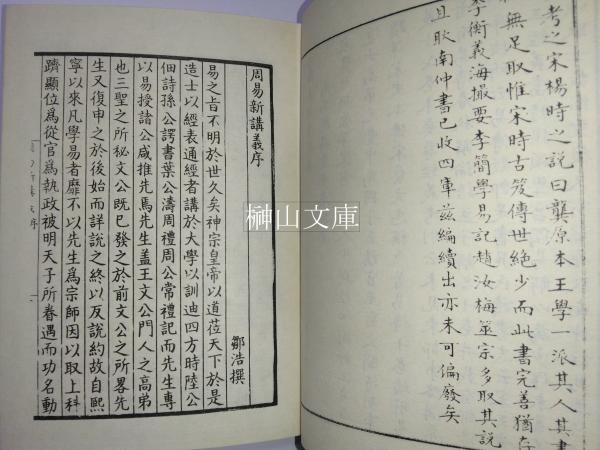 考之宋楊時之說曰龔原本王學一派其人其書
無足取惟宋時古笈傳世絶少而此書完善猶存
李衡義海撮要李簡學易記趙汝楳筮宗多取其說
且耿南仲書已收四庫玆編續出亦未可偏廢矣
周易新講義序
鄒浩撰
易之旨不明於世久矣神宗皇帝以道莅天下於是
造士以經表通經者講於大學以訓迪四方時陸公
佃詩孫公諤書葉公濤周禮周公常禮記而先生專
以易授諸公咸推先焉先生盖王文公門人之高弟
也三聖之所秘文公既已發之於前文公之所畧先
生又復申之於後始而詳說之終以反說約故自熙
寧以來凡學易者靡不以先生爲宗師因以取上科
躋顯位爲從官爲執政被明天子所眷遇而功名動
榊山文庫